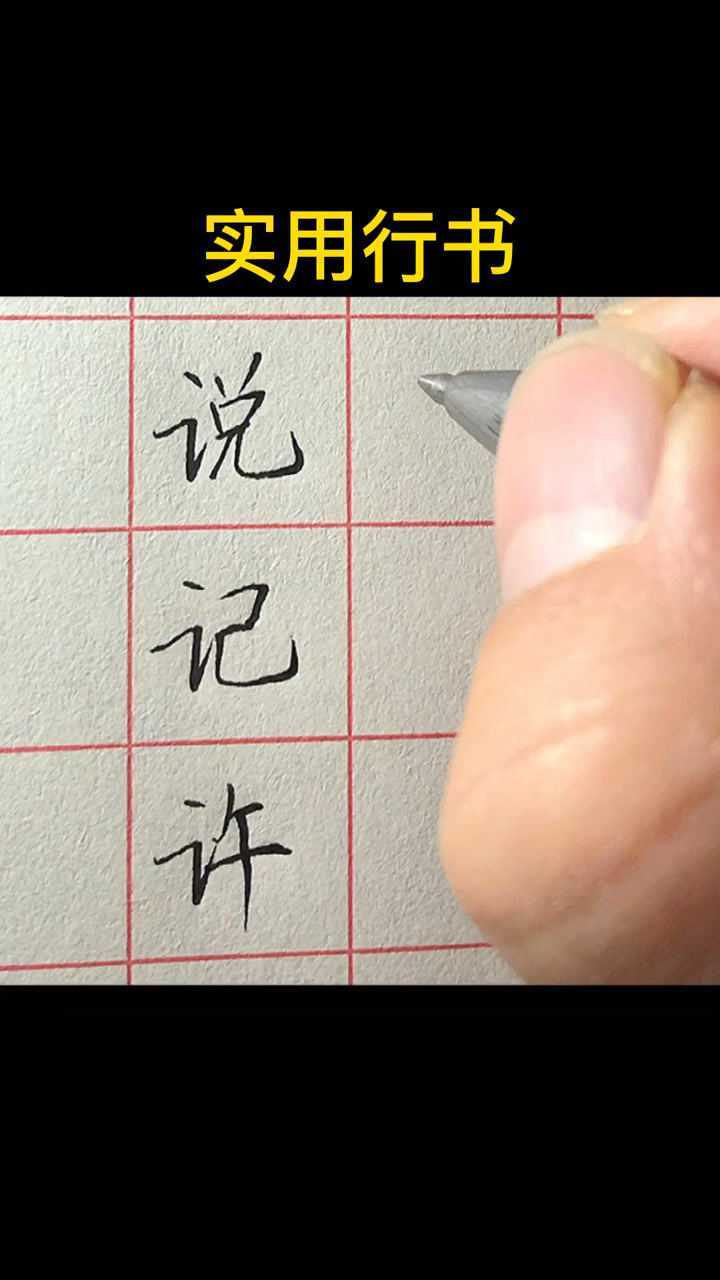 实用行书
说
记
许